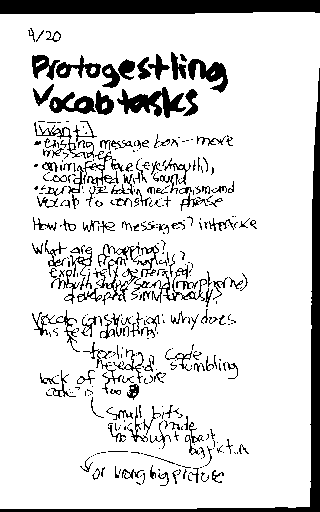 4/20
Protogestling
Vocab tasks
Want:
• existing message box -- more
messages
• animated face (eyes/mouth),
coordinated with sound
• sound: use babbly mechanism and
vocab to construct phrase
How to write messages? interface
What are mappings?
derived from
explicitely generated?
mouth shape/sound (morpheme)
developed simultaneously?
Vocab construction: why does
this feel daunting
tooling, code
needed, stumbling
lack of structure
code is too
small bits,
quickly made
no thought about
big picture
or wrong big picture